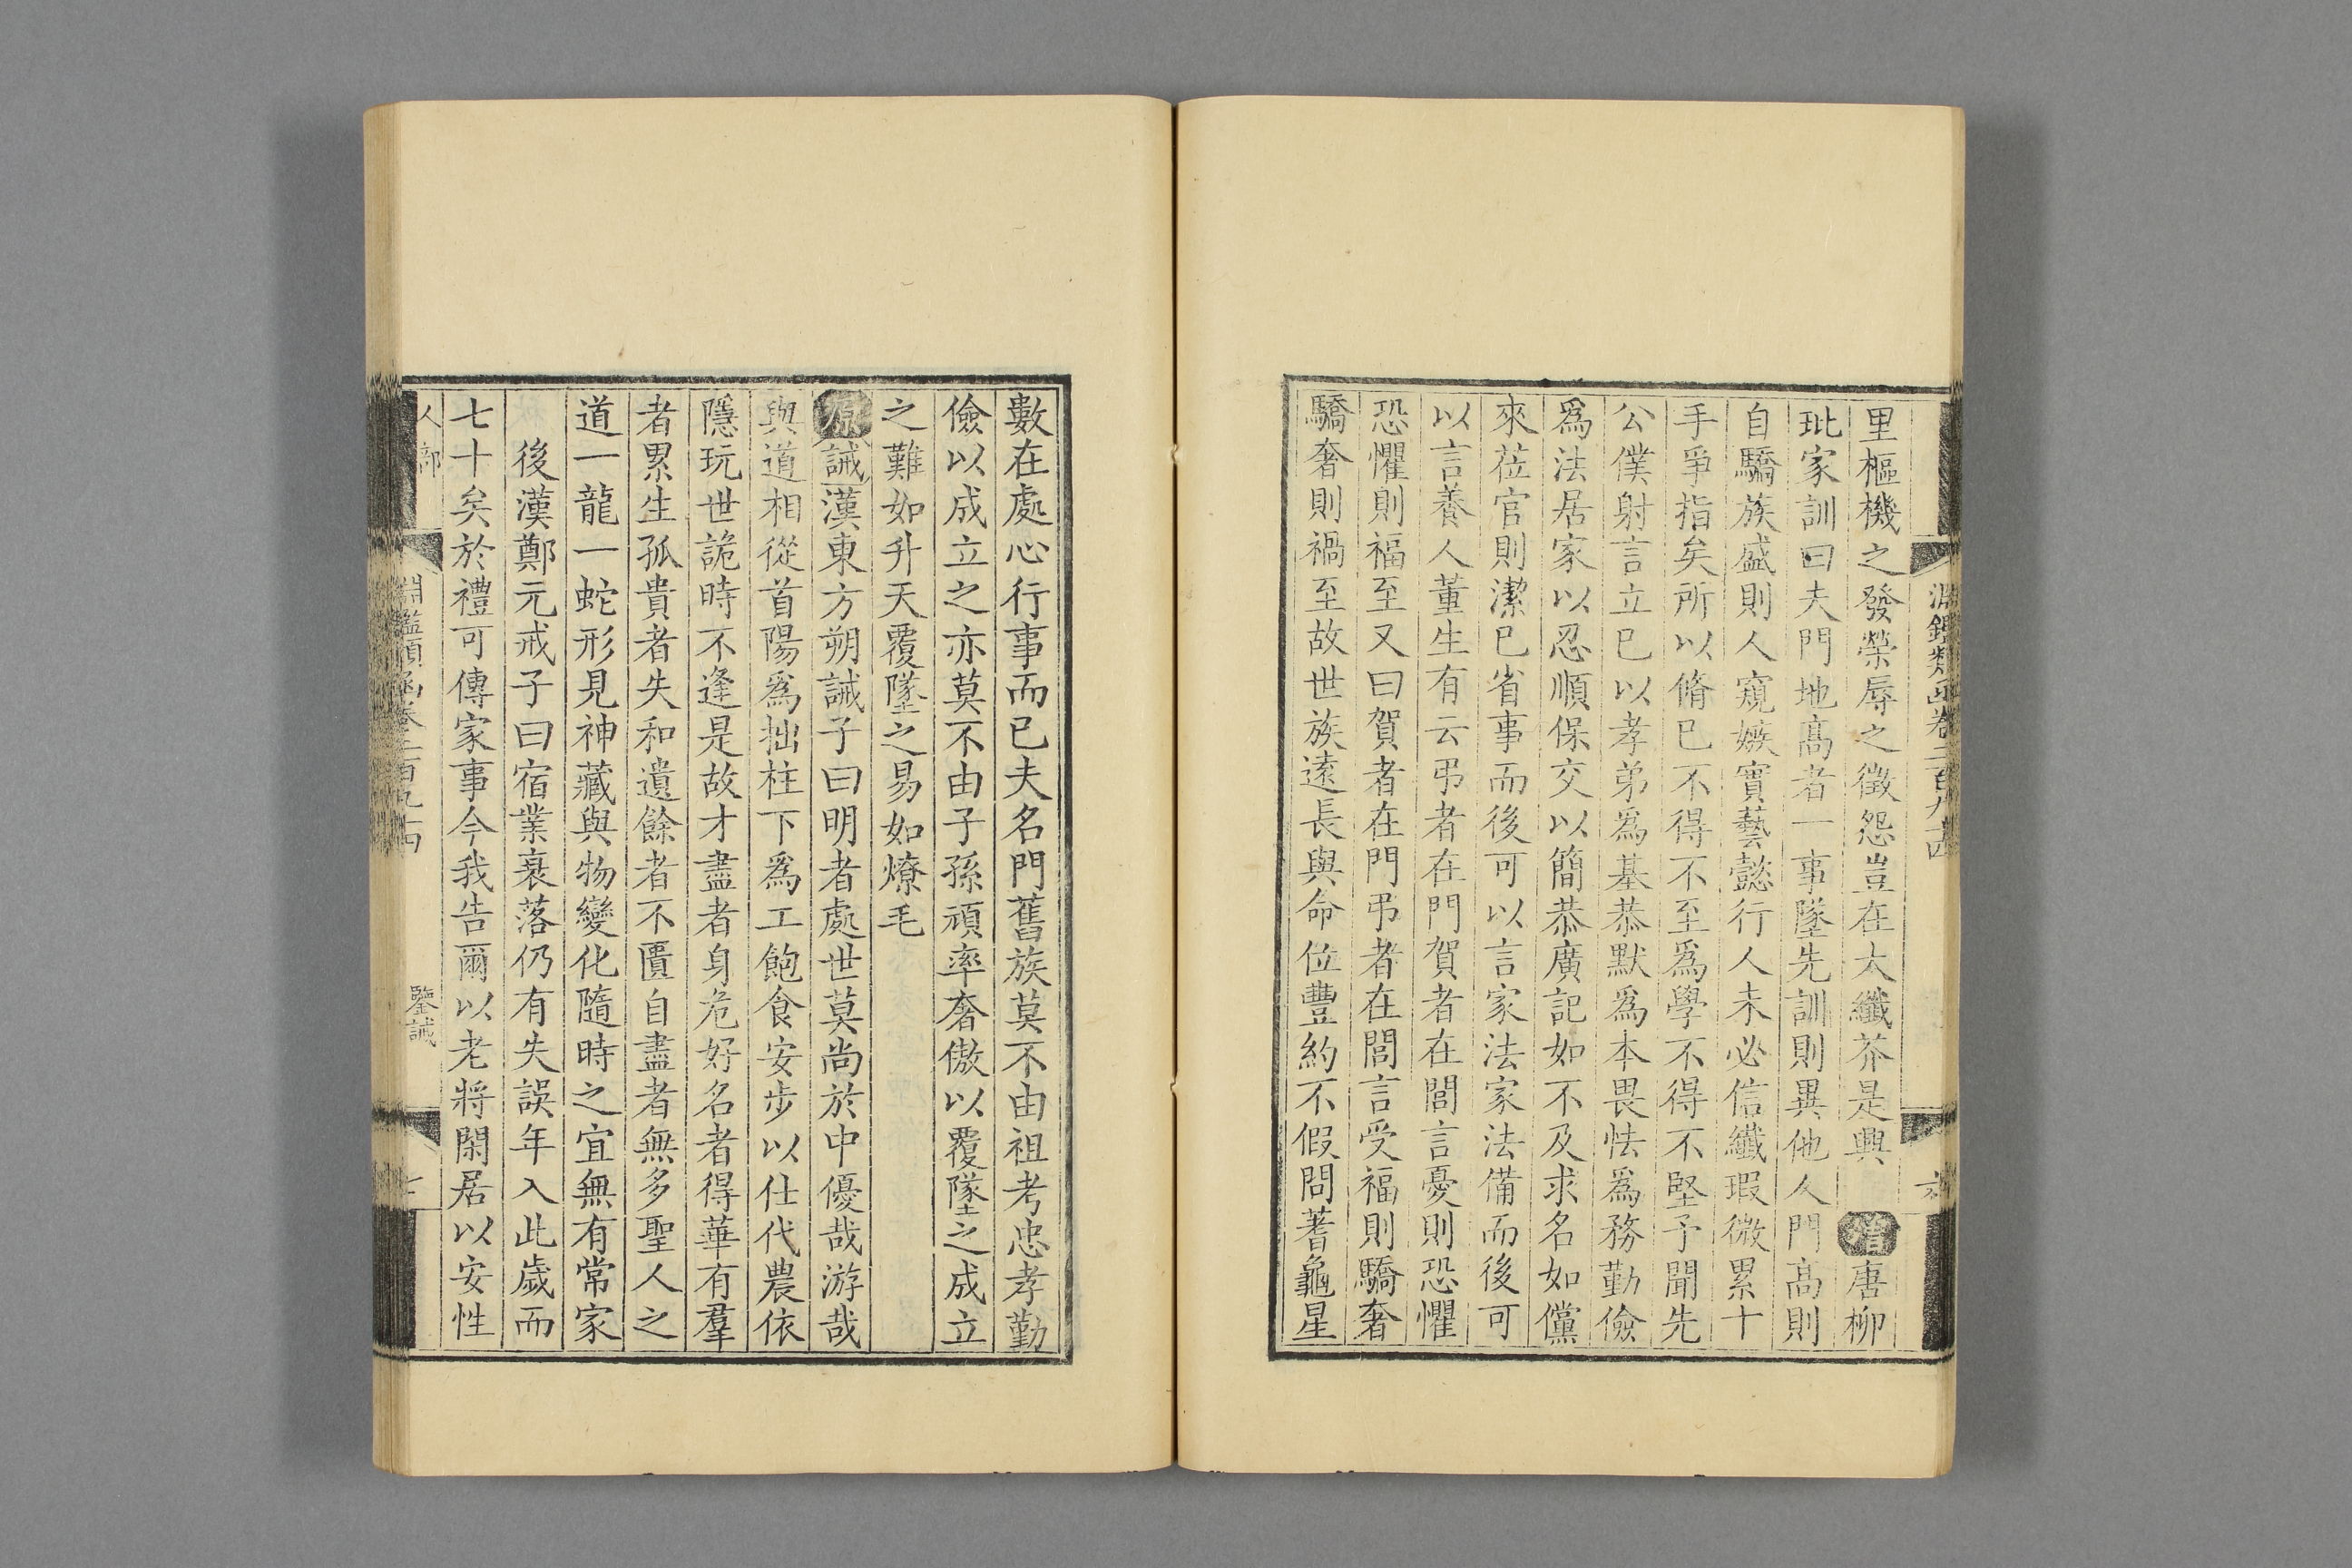 淵鑑類函卷二百九十四
六
里樞機之發榮辱之徵怨豈在大纖芥是興 增唐柳
玭家訓曰夫門地高者一事墜先訓則異他人門高則
自驕族盛則人窺嫉實藝懿行人未必信纖瑕微累十
手爭指矣所以脩已不得不至爲學不得不堅予聞先
公僕射言立已以孝弟爲基恭默爲本畏怯爲務勤儉
爲法居家以忍順保交以簡恭廣記如不及求名如儻
來莅官則潔已省事而後可以言家法家法備而後可
以言養人董生有云弔者在門賀者在閭言憂則恐懼
恐懼則福至又曰賀者在門弔者在閭言受福則驕奢
驕奢則禍至故世族遠長與命位豐約不假問蓍龜星
數在處心行事而已夫名門舊族莫不由祖考忠孝勤
儉以成立之亦莫不由子孫頑率奢傲以覆墜之成立
之難如升天覆墜之易如燎毛
原誡漢東方朔誡子曰明者處世莫尚於中優哉游哉
與道相從首陽爲拙柱下爲工飽食安步以仕代農依
隱玩世詭時不逢是故才盡者身危好名者得華有羣
者累生孤貴者失和遺餘者不匱自盡者無多聖人之
道一龍一蛇形見神藏與物變化隨時之宜無有常家
後漢鄭元戒子曰宿業衰落仍有失誤年入此歲而
七十矣於禮可傳家事今我告爾以老將閑居以安性
人部
淵鑑類函卷二百九十四
鑒誡
七